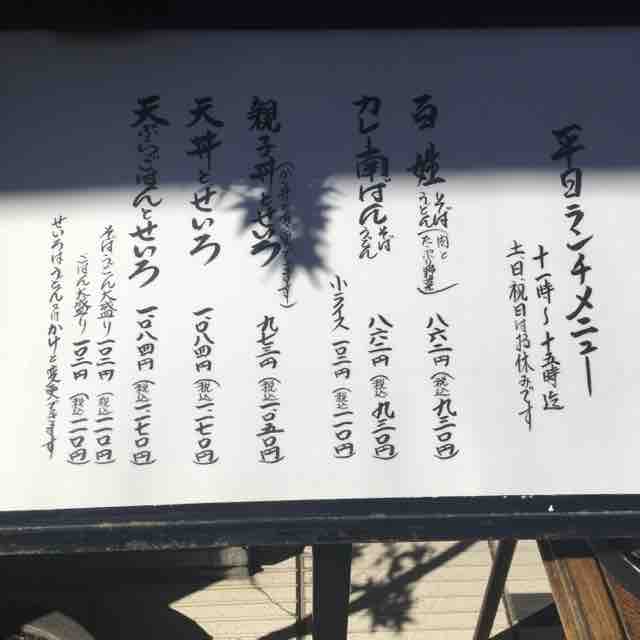 平日ランチメニュー
十一時～十五時迄
土日祝日はお休みです
百姓そば うどん(肉とたっぷり野菜) 八六二円(税込九三〇円)
カレー南ばんそば うどん 八六二円(税込九三〇円)
小ライス 一〇二円(税込一一〇円)
親子丼とせいろ 九七二円(税込一〇五〇円)
天丼とせいろ 一〇八四円(税込一一七〇円)
天ぷらごはんとせいろ 一〇八四円(税込一一七〇円)
そばうどん大盛り 一〇二円(税込一一〇円)
ごはん大盛り 一〇二円(税込一一〇円)
せいろはうどん かけと変更できます